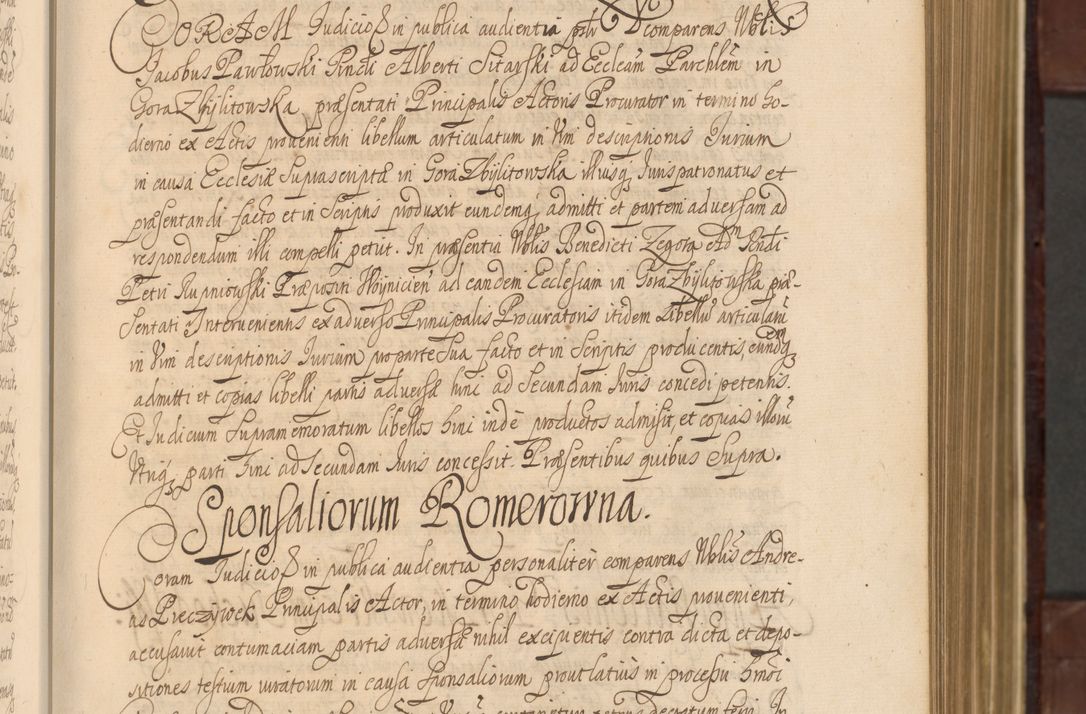 CORAM Judicioq in publica audientia ptr comparens Nblis
Jacobus Pawłowski Pndi Alberti Sitarski ad Ecclam Parchlem in
Gora Zbÿlitowska præsentati Principalis Actoris Procurator in termino ho-
dierno ex Actis provenienti libellum articulatum in Vim descriptionis Jurium
in causa Ecclesiæ suprascriptæ in Gora Zbÿlitowska illiusq Jurispatronatus et
præsentandi facto et in Scriptis produxit eundemq admitti et partem adversam ad
respondendum illi compelli petut. In præsentia Nblis Benedicti Zegota Adm Pndi
Petri Rupniowski Præpositi Woÿnicien ad eandem Ecclesiam in Gora Zbÿlitowska præ-
sentati Intervenientis ex adverso Principalis Procuratoris itidem Libellu articulatu
in Vim descriptionis Jurium pro parte sua facto et in Scriptis producentis, eundq
admitti et copias libelli partis adversæ hinc ad Secundam Juris concedi petentis.
Et Judicium supramemoratum libellos hinc indè productos admisit et copias illoru
Vtriq parti hinc ad Secundam Juris concessit. Præsentibus quibus Supra.
Sponsaliorum Romerowna.
Coram Judicioq in publica audientia personalitèr comparens Nblis Andre-
as Preczÿwek Principalis Actor, in termino hodierno ex Actis provenienti,
accusavit contumaciam partis adversæ nihil excipientis contra dicta et depo-
sitiones testium iuratorum in causa sponsaliorum prout latiùs in processu hmoi